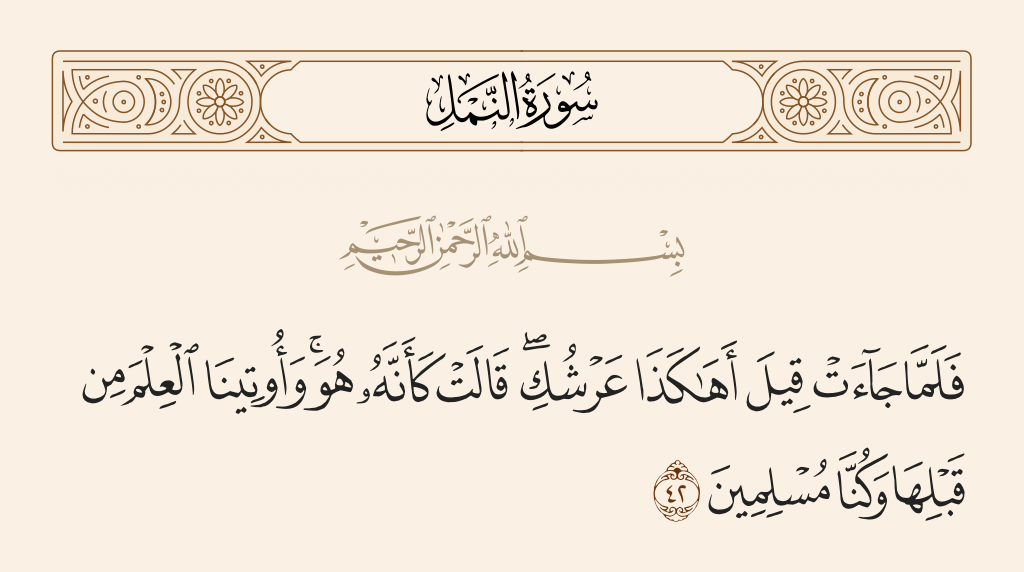 سُورَةُ النَّمْلِ
بِسْمِ ٱللَّهِ ٱلرَّحْمَٰنِ ٱلرَّحِيمِ
فَلَمَّا جَآءَتْ قِيلَ أَهَٰكَذَا عَرْشُكِ ۖ قَالَتْ كَأَنَّهُۥ هُوَ ۚ وَأُوتِينَا ٱلْعِلْمَ مِن
قَبْلِهَا وَكُنَّا مُسْلِمِينَ ٤٢